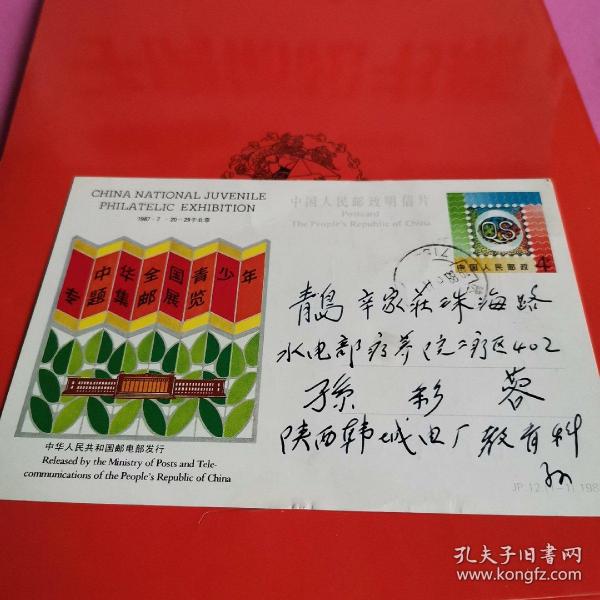 CHINA NATIONAL JUVENILE
PHILATELIC EXHIBITION
1987·7·20-29于北京
中华全国青少年
专题集邮展览
中华人民共和国邮电部发行
Released by the Ministry of Posts and Tele-
communications of the People's Republic of China
中国人民邮政明信片
Postcard
The People's Republic of China
中国人民邮政 4
青島 辛家莊珠海路
水电部疗养院二疗区402
孫 彩 蓉
陕西韩城电厂教育科
孙
JP.12.(1-1).198
孔夫子旧书网
www.kongfz.com